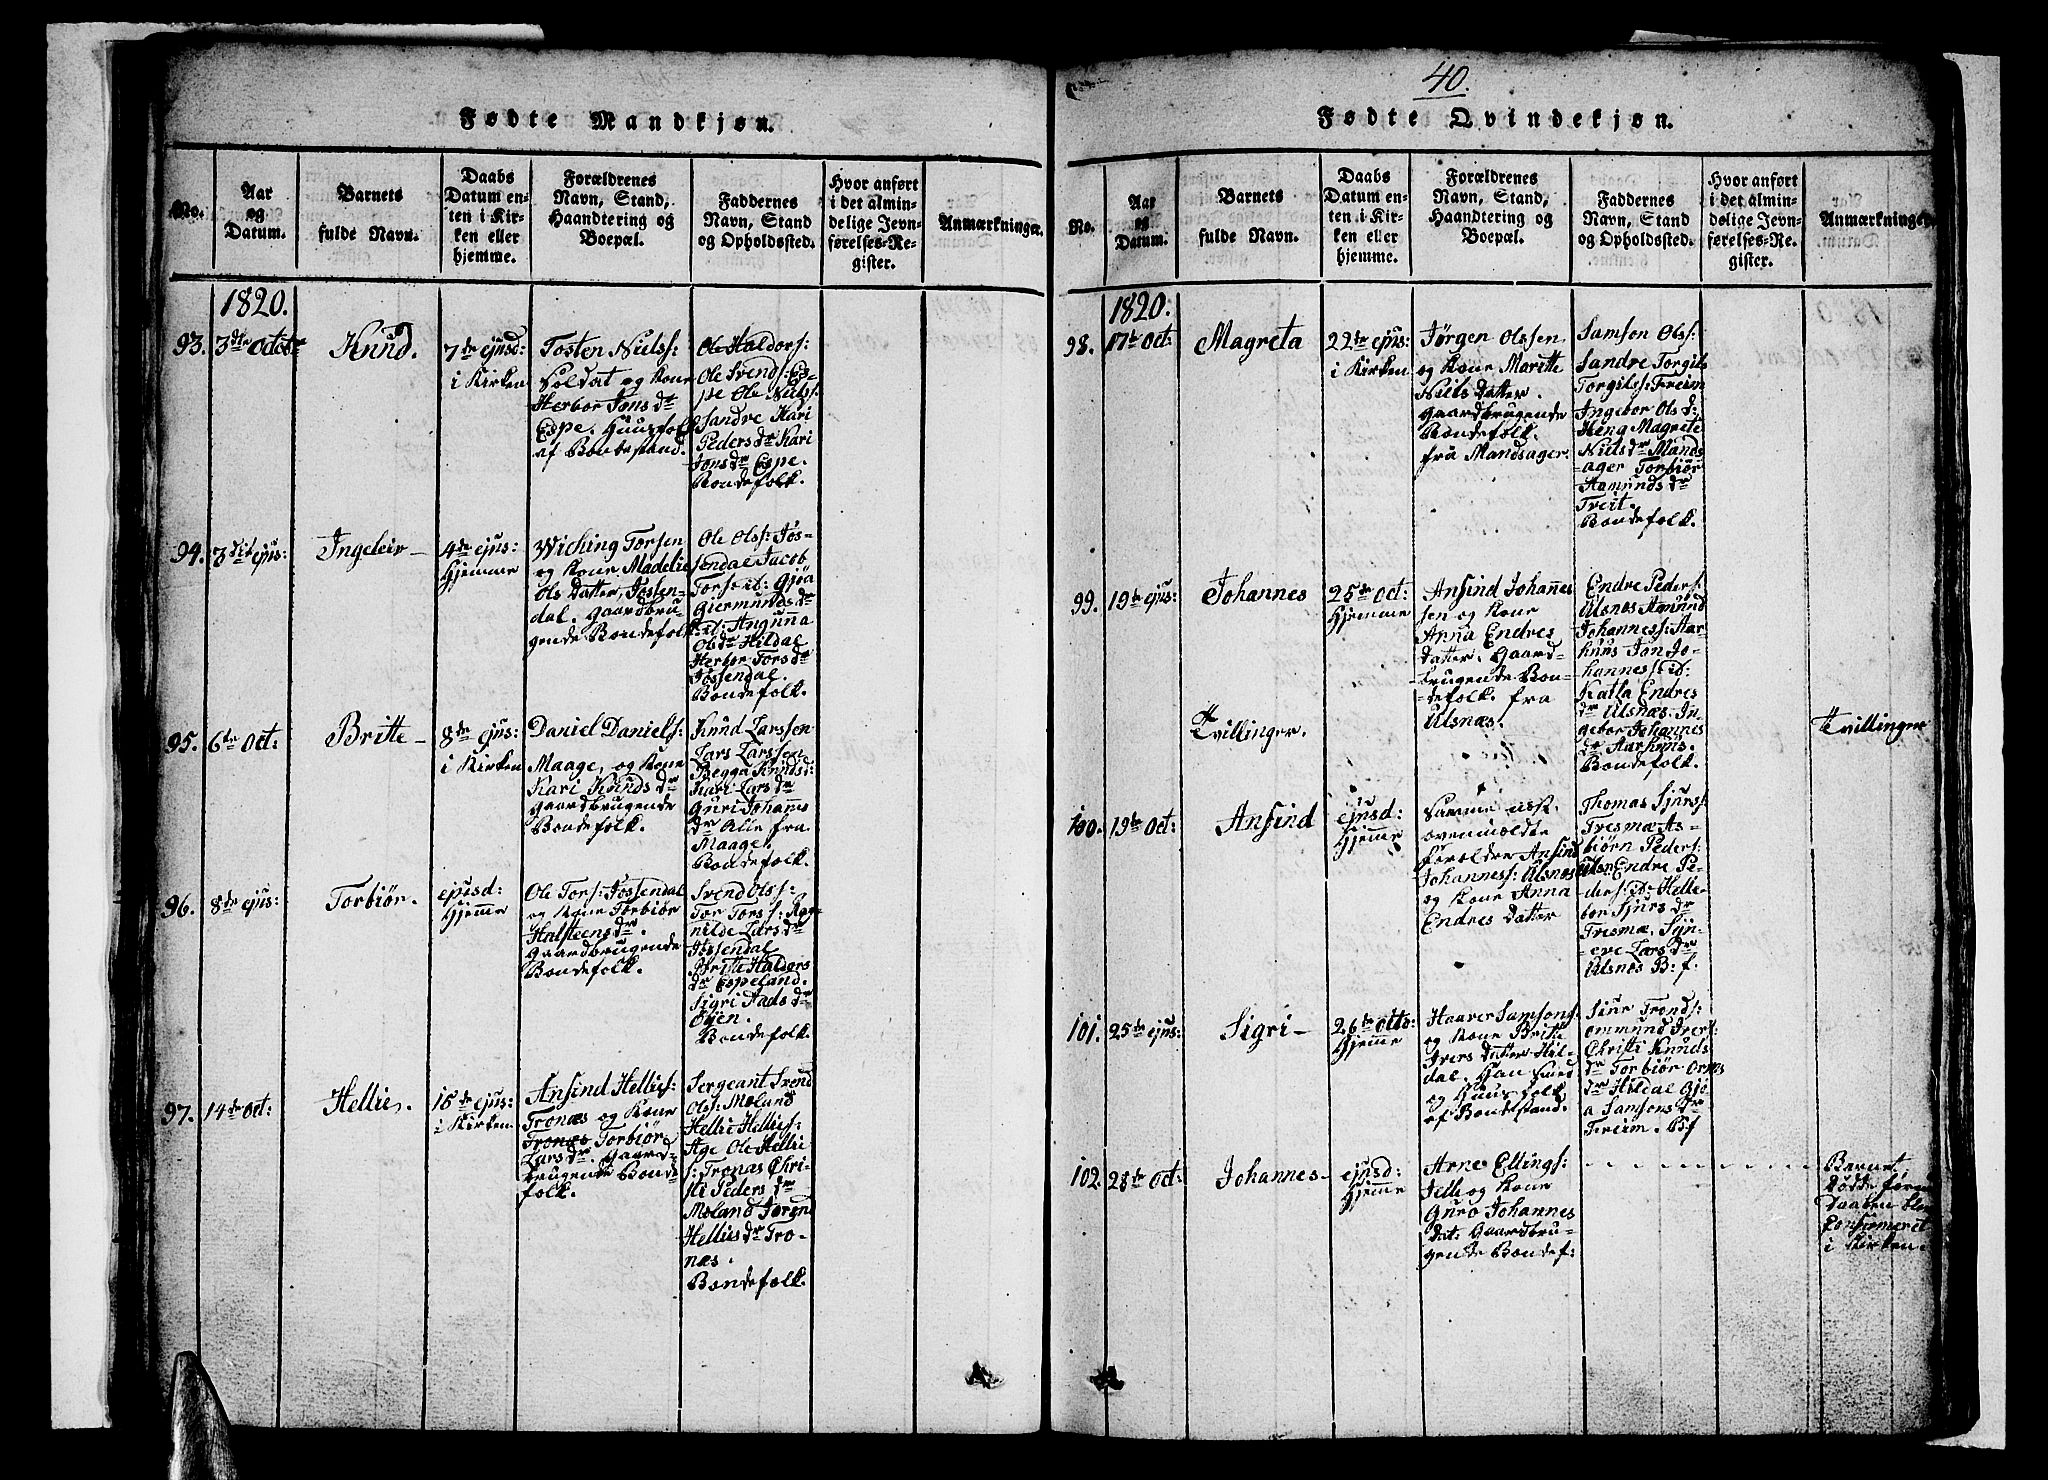 40.
Fødte Mandkjøn.
No.
Aar
og
Datum.
Barnets
fulde Navn.
Daabs
Datum en-
ten i Kir-
ken eller
hjemme.
Forældrenes
Navn, Stand,
Haandtering og
Boepæl.
Faddernes
Navn, Stand
og Opholdssted.
Hvor anført
i det almin-
delige Jevn-
førelses-Re-
gister.
Anmærkninger.
1820.
93.
3die Octobr
Knud.
7de ejusd
i Kirken
Tosten Niels:
Soldat og Kone
Herbor Jons dr
Espe. Huusfolk
af Bondestand.
Ole Haldors:
Ole Svends: Es-
pe Ole Niels:
Sandre Kari
Peders dr Kari
Jons dr Espe.
Bondefolk.
94.
3die ejus:
Ingeleir
4de ejus:
Hjemme
Wiching Torsen
og Kone Madelie
Ols Datter, Jøssen-
dal. Gaardbru-
gende Bondefolk
Ole Ols: Jøs-
sendal Jacob
Tors: id: Gjøa
Giermunds dr
id: Angunna
Ols dr Hildal
Herbor Tors dr
Jøssendal.
Bondefolk.
95.
6te Oct:
Britte
8de ejus:
i Kirken
Daniel Daniels:
Maage, og Kone
Kari Knuds dr
Gaardbrugende
Bondefolk.
Knud Larssen
Lars Larssen
Begga Knuds d:
Kari Lars dr
Guri Johanns
dr Alle fra
Maage.
Bondefolk.
96.
8de ejus:
Torbiør.
ejusd:
Hjemme
Ole Tors: Jøssendal
og Kone Torbiør
Halsteens dr.
Gaardbrugende
Bondefolk.
Svend Ols:
Tor Tors: Rag-
nilde Lars dr
Jøssendal
Britte Haldors
dr Espeland.
Sigri Aads dr
Øyen.
Bondefolk.
97.
14de Oct:
Hellie.
15de ejus:
i Kirken.
Ansind Hellies:
Tronæs og Kone
Tronæs Torbiør
Lars dr. Gaard-
brugende Bonde
folk.
Sergeant Svend
Ols: Moland
Hellie Hellies:
Age Ole Hellie
s: Tronæs Chri-
sti Peders dr
Moland Joren
Hellies dr Tro-
næs.
Bondefolk.
Fødte Qvindekjøn.
No.
Aar
og
Datum.
Barnets
fulde Navn.
Daabs
Datum en-
ten i Kir-
ken eller
hjemme.
Forældrenes
Navn, Stand,
Haandtering og
Boepæl.
Faddernes
Navn, Stand
og Opholdssted.
Hvor anført
i det almin-
delige Jevn-
førelses-Re-
gister.
Anmærkninger.
1820.
98.
17de Oct:
Magreta
22de ejus:
i Kirken
Jørgen Olssen
og Kone Maritte
Niels Datter.
Gaardbrugende
Bondefolk.
fra Mandsager.
Samson Ols:
Sandre Torgils
Torgils: Freim
Ingebor Ols d:
Heng Magrete
Niels dr Mands
ager Torbiør
Aamunds dr
Treit.
Bondefolk.
99.
19de ejus:
Johannes
25de Oct:
Hjemme
Ansind Johannes
sen og Kone
Anna Endres
Datter. Gaard-
brugende Bon-
defolk. fra
Ulsnæs.
Endre Peders:
Ulsnæs Amund
Johannes: Aar-
huus Jon Jo-
hannes: id:
Katla Endres
dr Ulsnæs. In-
gebor Johannes
dr Aarhuus.
Bondefolk.
Tvillinger.
Tvillinger
100.
19de Oct:
Ansind
ejusd:
Hjemme
Samme
ovenmeldte
Forældre Ansind
Johannes: Ulsnæs
og Kone Anna
Endres Datter
Thomas Sjurs:
Tresmæ As-
biørn Peders:
Ulsn: Endre Pe-
ders: id: Helle-
bor Sjurs dr
Tresmæ, Syn-
eve Lars dr
Ulsnes B: f:
101.
25de ejus:
Sigri
26de Octo:
Hjemme
Haaver Samsons:
og Kone Britte
Ivers Datter Hil-
dal. Han Smed
og Huusfolk,
af Bondestand.
Siur Tronds:
Ommund Ivers:
Christi Knuds
dr Torbiør Orms
dr Hildal Gjø
a Samsons dr
Freim. Bf
102.
28de Oct:
Johannes
ejusd:
Hjemme
Arne Ellings:
Jelle og Kone
Guro Johannes
Dat: Gaardbru-
gende Bondef:
Barnet
døde foren
Daaben blev
Confirmeret
i Kirken.